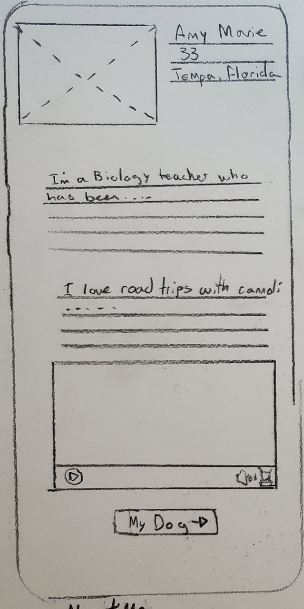 Amy Movie
33
Tempa, Florida
I'm a Biology teacher who
has been....
I love road trips with
.....
My Dog →